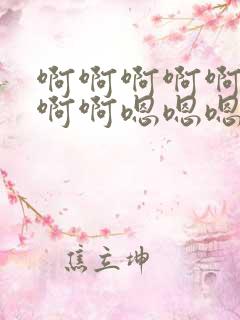 啊啊啊啊啊
啊啊嗯嗯嗯
焦立坤